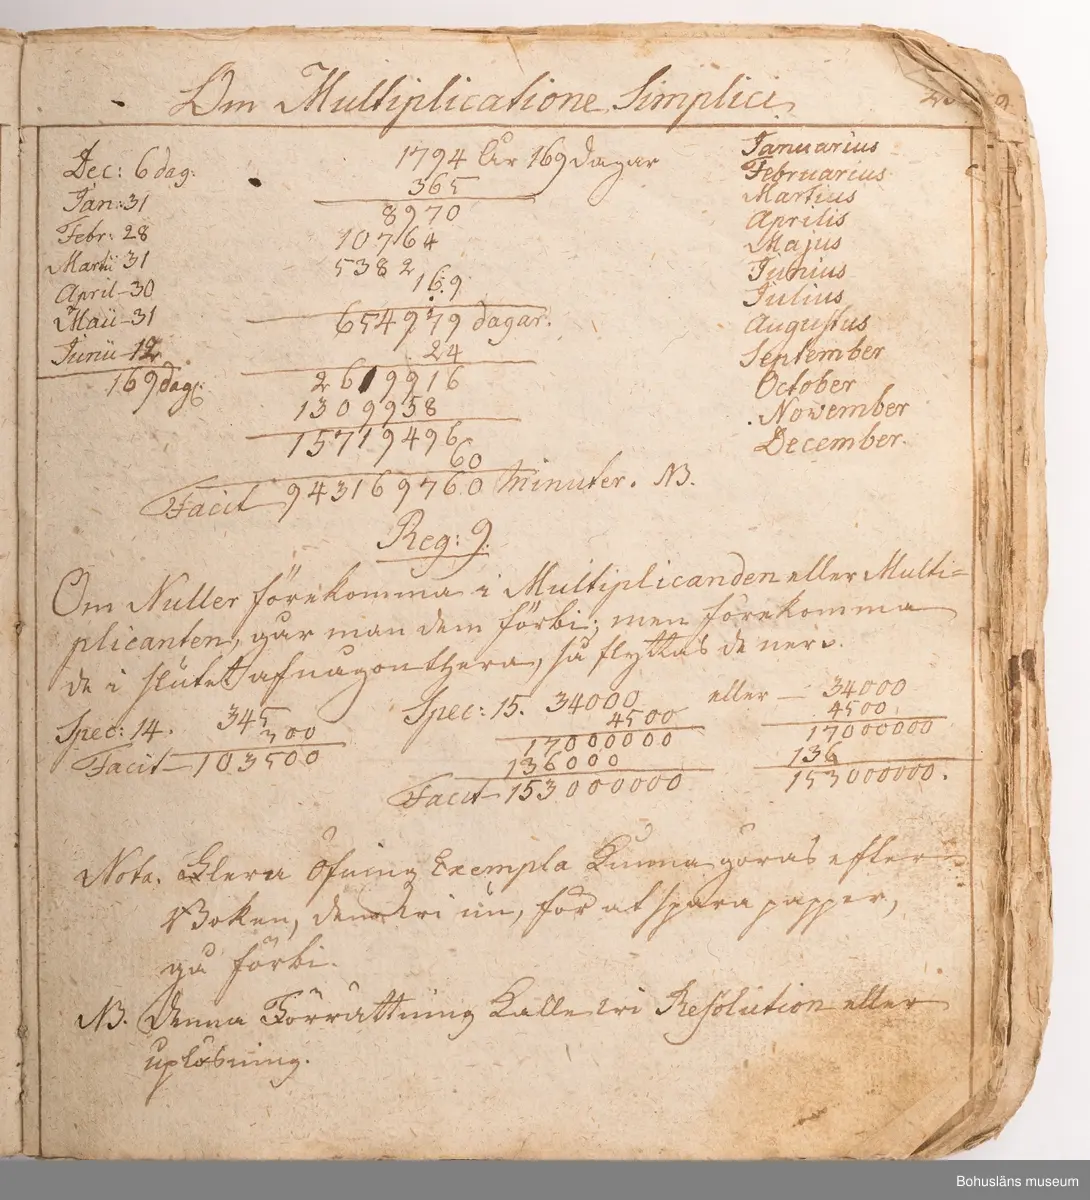 Om Multiplicatione Simplici
Dec: 6 dag:
Jan: 31
Febr: 28
Martii 31
April - 30
Maii - 31
Junii - 12
169 dag:
1794 år 169 dagar
365
8970
10764
5382
169
654979 dagar.
24
2619916
1309958
15719496
60
Facit 943169760 Minuter. NB.
Januarius
Februarius
Martius
Aprilis
Majus
Junius
Julius
Augustus
September
October
November
December.
Reg: 9.
Om Nuller förekomma i Multiplicanden eller Multi=
plicanten, går man dem förbi; men förekomma
de i slutet af någonthera, så flyttas de ner.
Spec: 14. 345
300
Facit - 103500
Spec: 15. 34000
4500
17000000
136000
Facit - 153000000
eller - 34000
4500
17000000
136
153000000.
Nota. Flera Öfning Exempla Kunna göras efter
Boken, dem vi nu, för at spara papper,
gå förbi.
NB. Denna Förrättning Kalle vi Resolution eller
uplösning.
Bohusläns museum